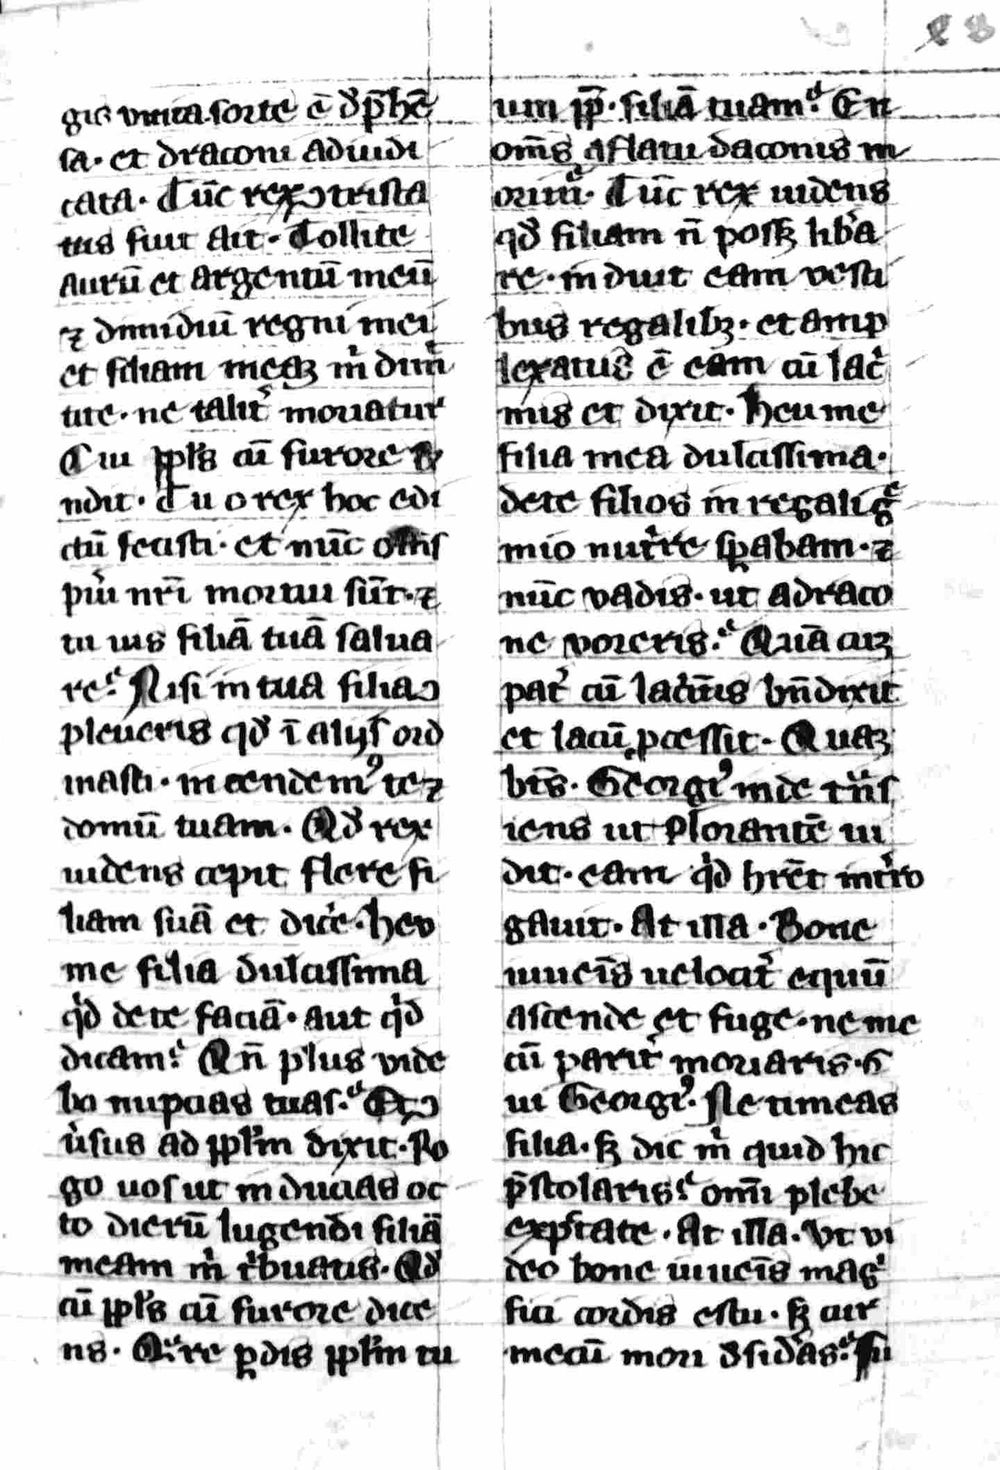 gis unica sorte ē dp̄hē
sa· et draconi adiudi
cata· Tūc rex ↄtrista
tus fuit ait· Tollite
aurū et argentū meū
⁊ dimidiū regni mei
et filiam meaꝫ m̉ dimi
tite· ne talit̉ moriatur
Cui ppl̉s cū furore
ndit· Tu o rex hoc edi
ctū fecisti· et nūc
pūi nr̄i mortui sūt· ⁊
tu uis filiā tuā salua
re· Nisi in tua filia ↄ
pleueris qď ī alijs ord
inasti· incendemꝰ te ⁊
domū tuam· Qď rex
uidens cepit flere fi
liam suā et dice̓· heu
me filia dulcissima
qͥd de te faciā· aut qͥd
dicam· Qn̄ plus uide
bo nupcias tuas· Et ↄ
u̓sus ad pplm̄ dixit· Ro
go uos ut inducias oc
to dierū lugendi filiā
meam m̉ tͥbuatis· Qď
cū ppl̉s cū furore dice
ns· Qͣre ꝑdis pplm̄ tu
um ꝓp̄· filiā tuam· En
om̄s aflatu daconis m
orimͬ· Tūc rex uidens
qď filiam n̄ possꝫ lib̓a
re· induit eam uesti
bus regalibꝫ· et amp
lexatus ē eam cū lac̓
mis et dixit· heu me
filia mea dulcissima·
de te filios in regali g̓e
mio nut̓re sꝑabam· ⁊
nūc uadis· ut a draco
ne uoreris· Quā cuꝫ
pat̉ cū lac̓mis bn̄dixit
et lacū ꝓcessit· Quaꝫ
bt̄s· Georgiꝰ inde tͣns
iens ut plorantē ui
dit· eam qͥd hr̄et int̓ro
gauit· At illa· Bone
iuuenis uelocit̉ equū
ascende et fuge· ne me
cū parit̉ moriaris· C
ui Georgiꝰ· Ne timeas
filia· sꝫ dic m̉ quid hic
p̄stolaris· om̄i plebe
expc̄tate· At illa· Vt ui
deo bone iuuenis magͥ
fici cordis es tu· sꝫ cur
mecū mori dsid̓as· fu